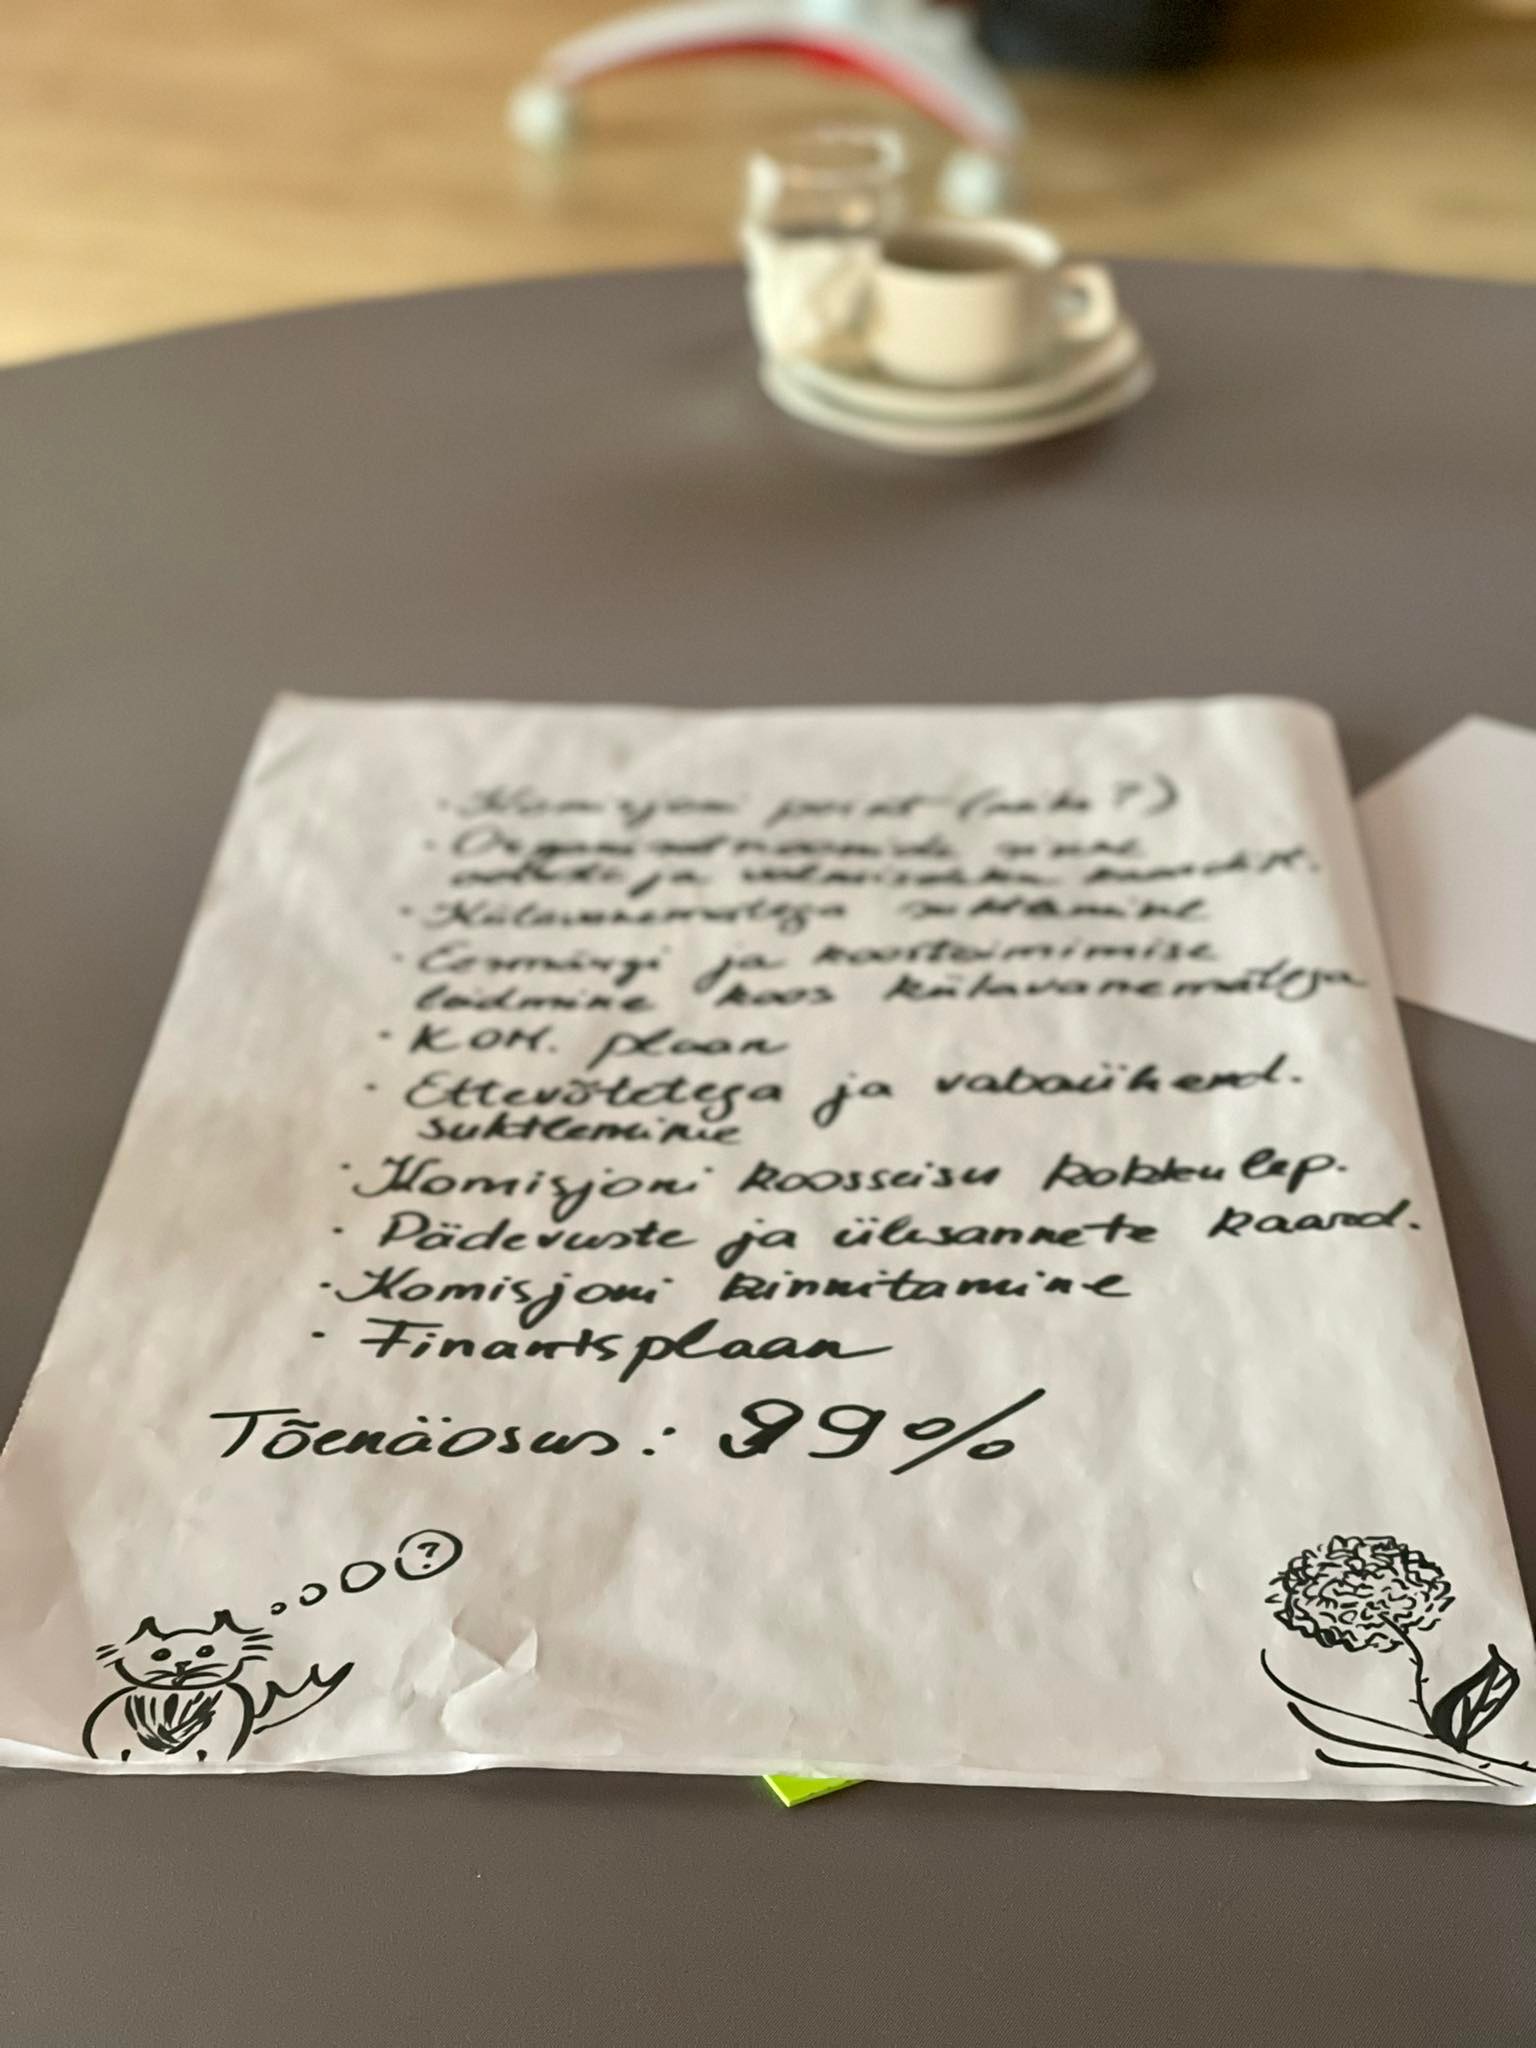 · Komisjoni point (miks?)
· 
ja
· Külavanematega suhtlemine
· Eesmärgi ja koostoimimise
leidmine koos külavanematega
· KOM. plaan
· Ettevõtetega ja vabaühend.
suhtlemine
· Komisjoni koosseisu kokkulep.
· Pädevuste ja ülesannete kaard.
· Komisjoni kinnitamine
· Finantsplaan
Tõenäosus: 99%
?